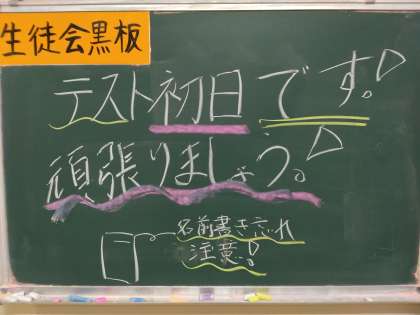 生徒会黒板
テスト初日です。!
頑張りましょう。!
名前書き忘れ
注意..!